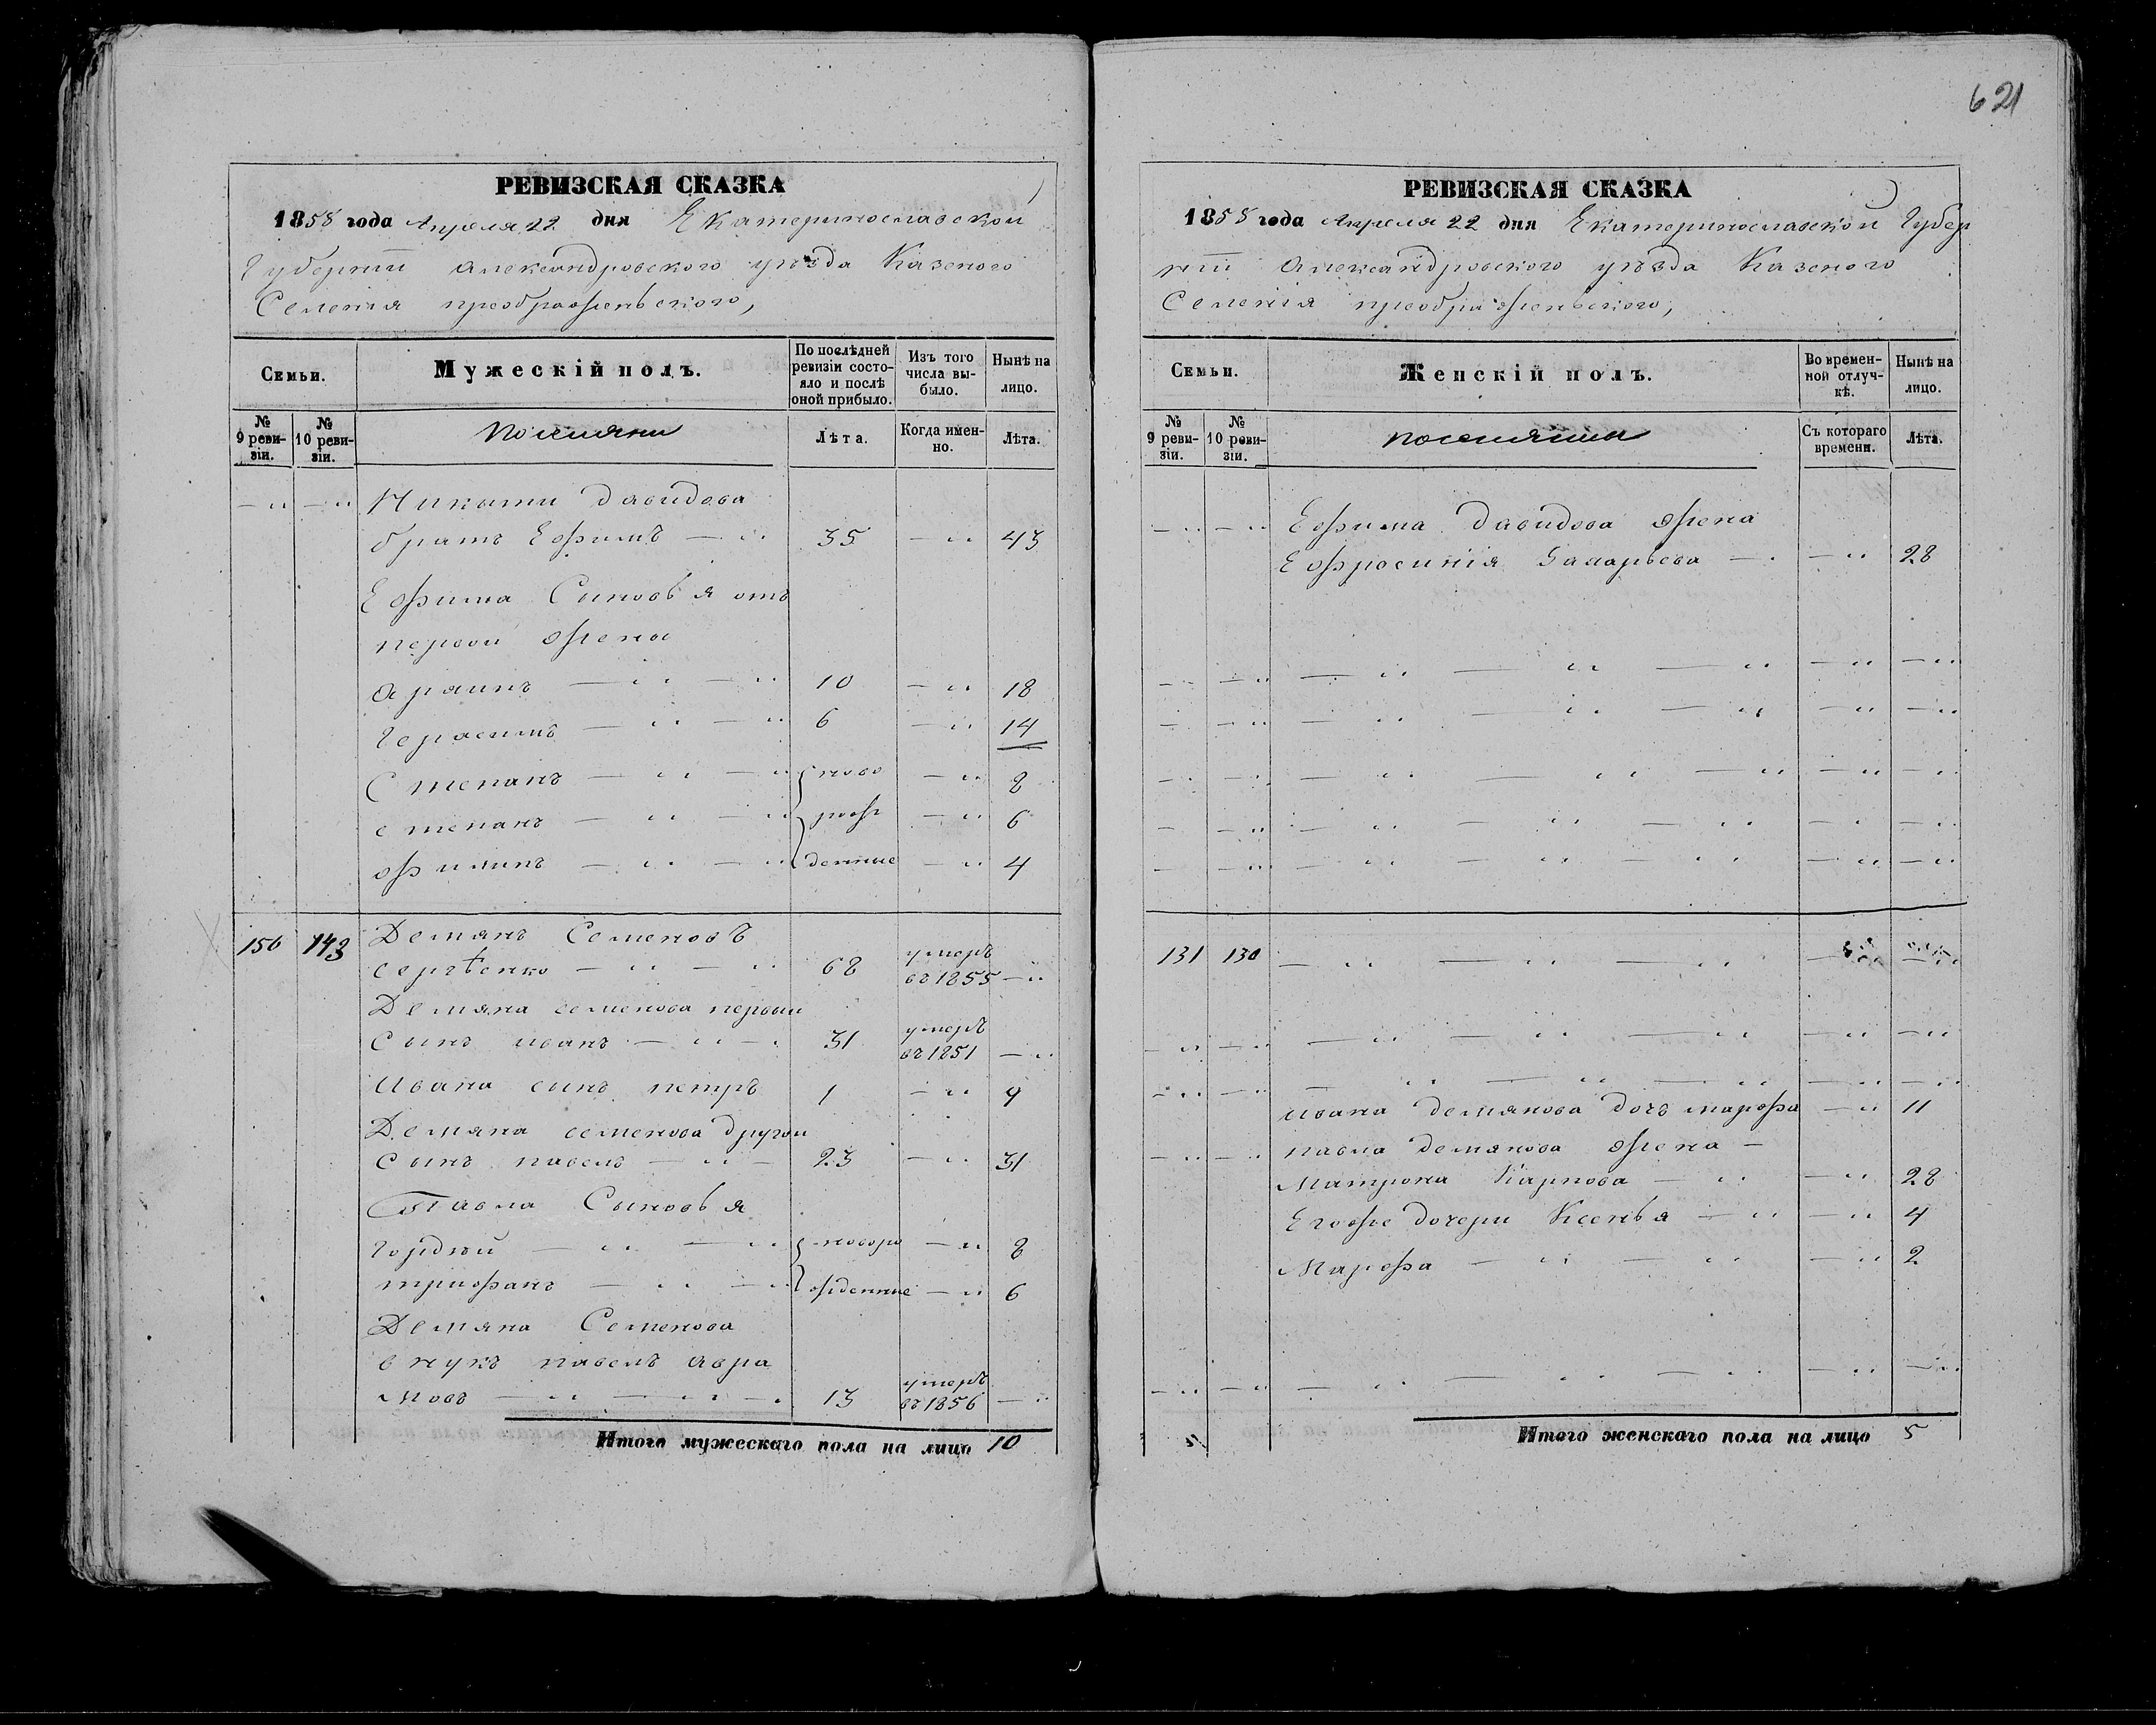 621
РЕВИЗСКАЯ СКАЗКА
1858 года Апреля 22 дня Екатеринославской
Губернiи Александровского уѣзда Казеного
Селенiя преображеньского,
Семьи.
Мужескiй полъ.
По послѣдней ревизiи состо-
яло и послѣ
оной прибыло.
Изъ того
числа вы-
было.
Нынѣ на
лицо.
№
9 реви-
зiи.
№
10 реви-
зiи.
поселяни
Лѣта.
Когда имен-
но.
Лѣта.
— " — " Никиты давидова
братъ Ефимъ — " 35 — " 43
Ефима Сыновья отъ
первой жены
— " — " 10 — " 18
Герасимъ — " — " 6 — " 14
Степанъ — " — " ново — " 8
степанъ — " — " рож — " 6
филипъ — " — " денные — " 4
156 143 Демянъ Семеновъ
сергѣенко — " — " 68 умеръ въ 1855 — "
Демяна семенова первый
Сынъ иванъ — " — " 31 умеръ въ 1851 — "
Ивана сынъ петръ 1 — " 9
Демяна семенова другой
Сынъ павелъ — " — 23 — " 31
Павла Сыновья
Гордѣй — " — " новоро — " 8
трифанъ — " — " жденные — " 6
Демяна Семенова
внукъ павелъ авра
мовъ — " — " — 13 умеръ въ 1856 — "
Итого мужескаго пола на лицо 10
РЕВИЗСКАЯ СКАЗКА
1858 года Апреля 22 дня Екатеринославской Губер
нiи Александровского уѣзда Казеного
Селенiя преображеньского,
Семьи.
Женскiй полъ.
Во времен-
ной отлуч-
кѣ.
Нынѣ на
лицо.
№
9 реви-
зiи.
№
10 реви-
зiи.
Съ котораго
времени.
Лѣта.
— " — " Ефима давидова жена
Ефросинiя Захарьева — " — " 28
— " — " — " — " — " — " — "
— " — " — " — " — " — " — "
— " — " — " — " — " — " — "
— " — " — " — " — " — " — "
— " — " — " — " — " — " — "
131 130 — " — " — " — " — "
— " — " — " — " — " — " — "
— " — " — " — " — " — " — "
ивана демянова дочь марфа — " 11
— " — " павла демянова жена —
Матрона Карпова — " — " 28
Егоже дочери Ксенья — " — " 4
Марфа — " — " — " 2
— " — " — " — " — " — " — "
Итого женскаго пола на лицо 5